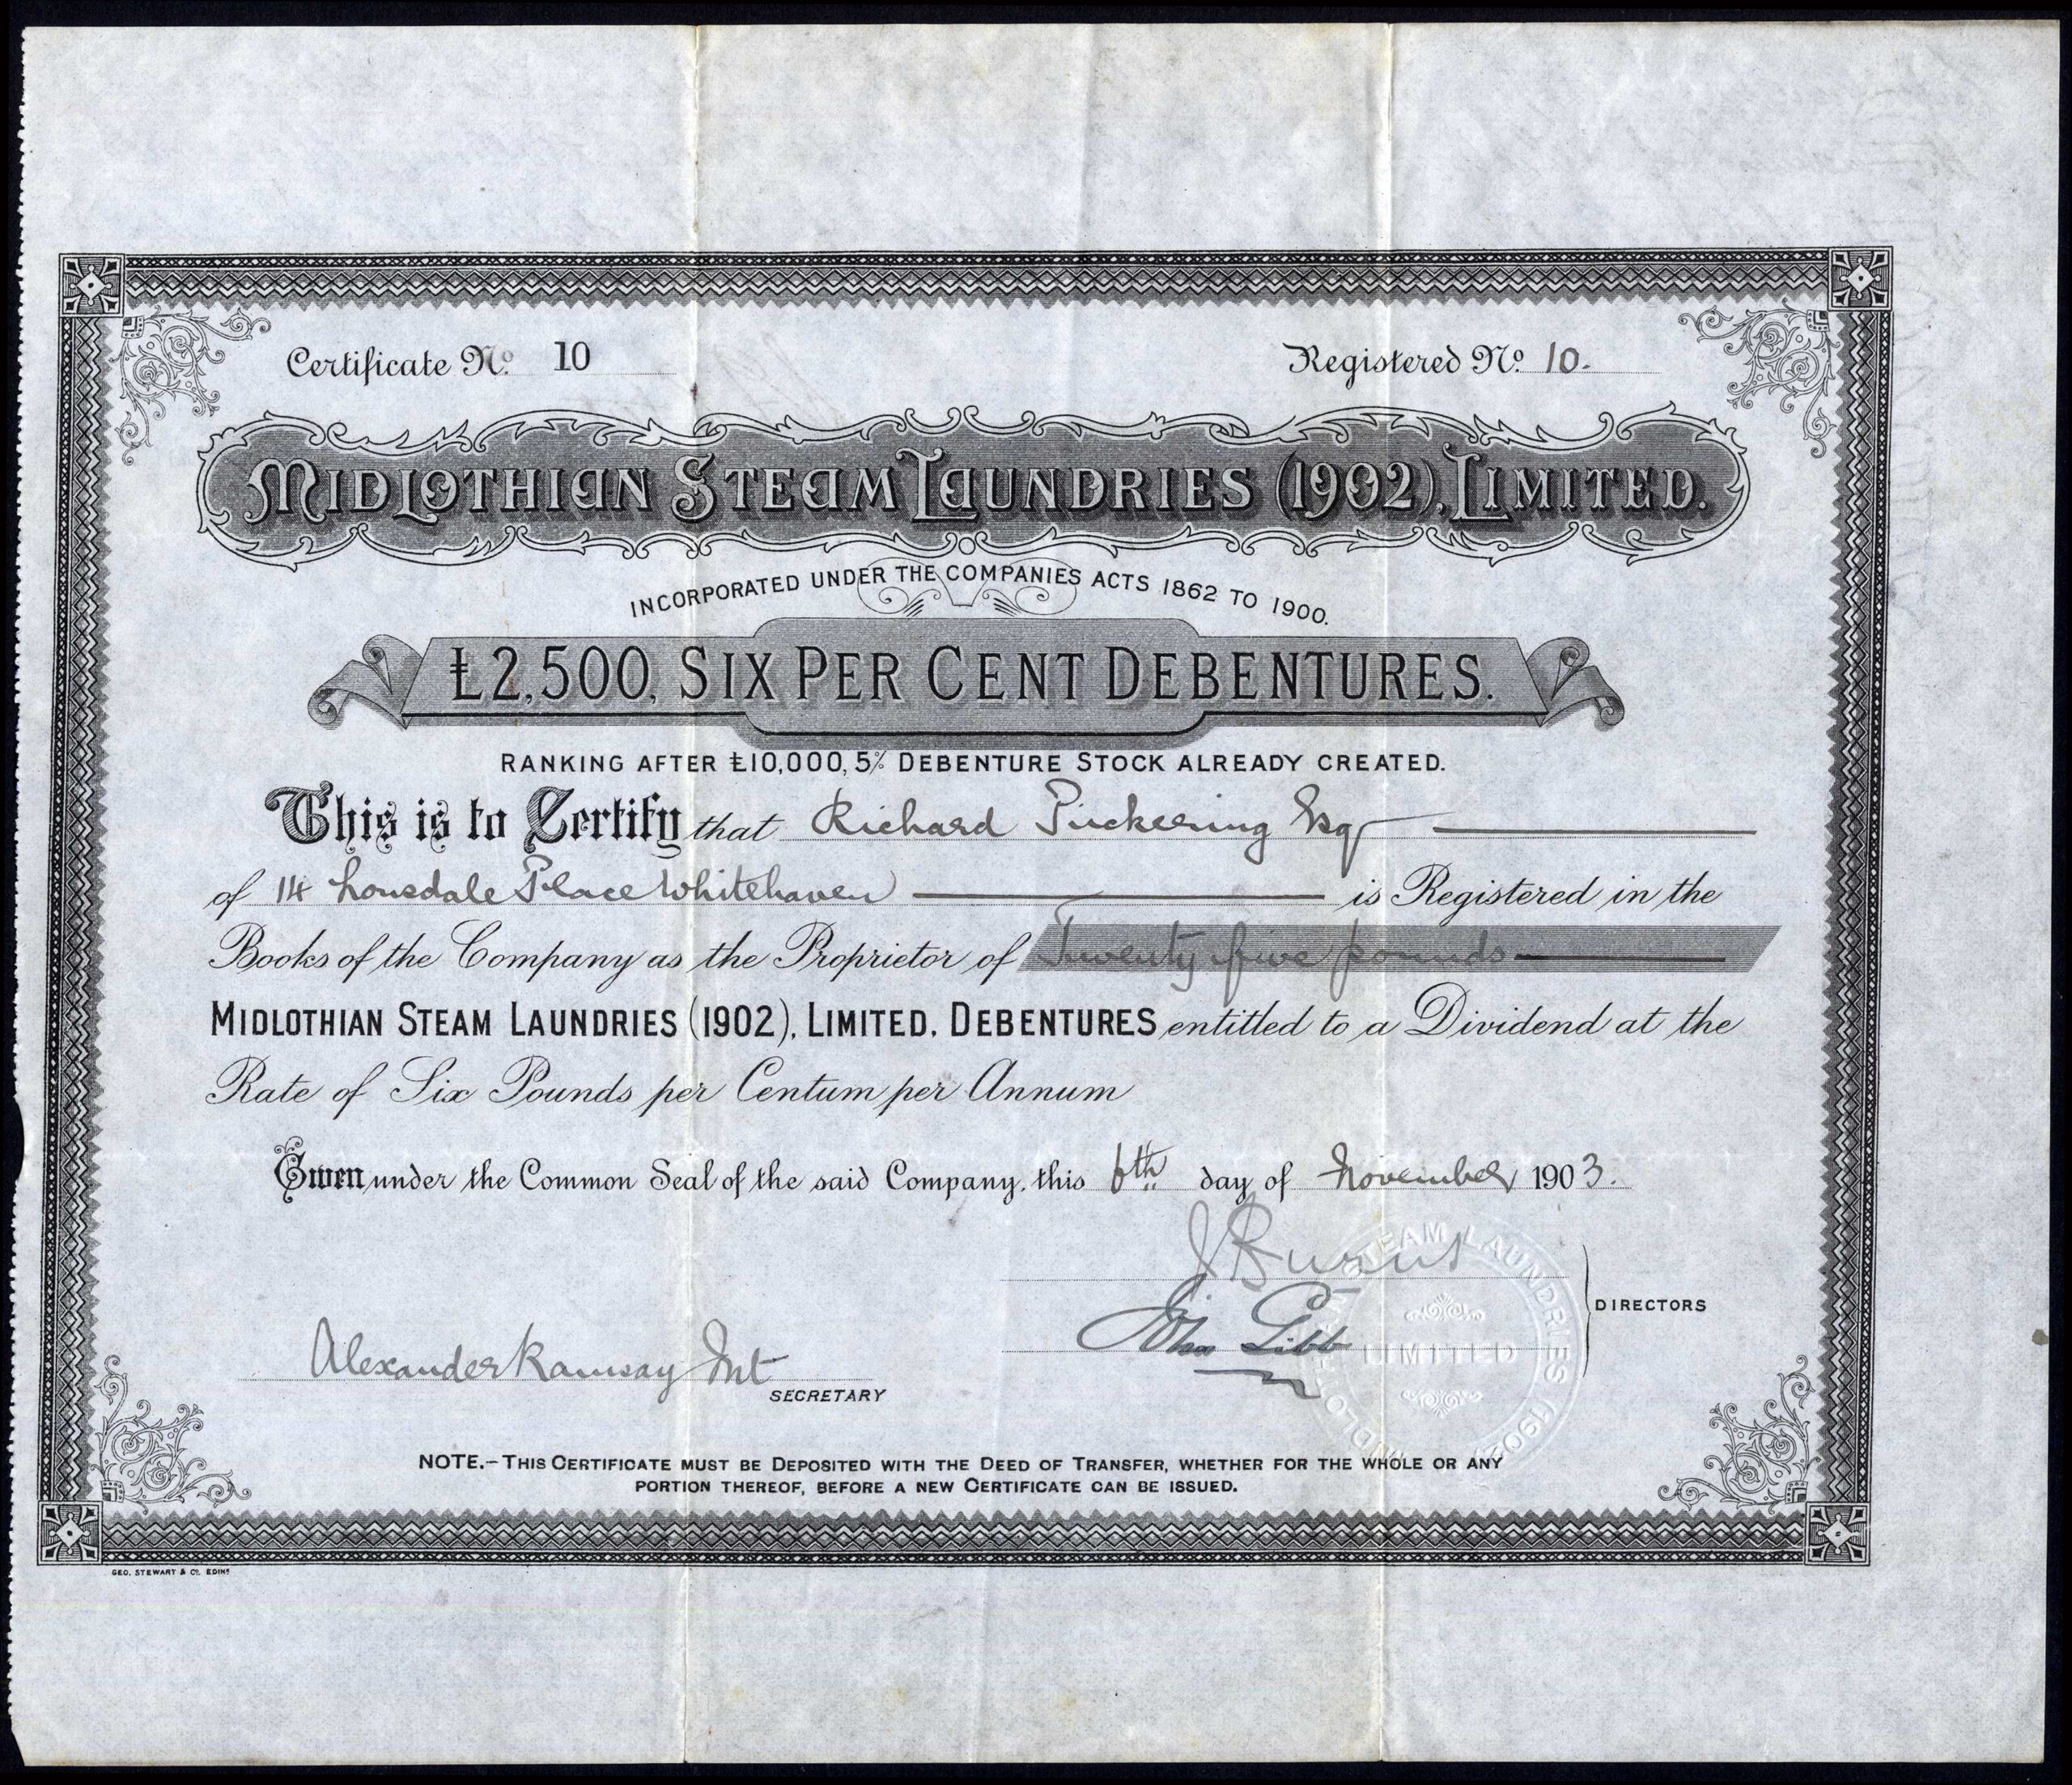 Certificate No. 10
Registered No. 10.
MIDLOTHIAN STEAM LAUNDRIES (1902), LIMITED.
INCORPORATED UNDER THE COMPANIES ACTS 1862 TO 1900.
£2,500, SIX PER CENT DEBENTURES.
RANKING AFTER £10,000, 5% DEBENTURE STOCK ALREADY CREATED.
This is to Certify that Richard Pickering Esqr
of 14 Lonsdale Place Whitehaven is Registered in the
Books of the Company as the Proprietor of Twenty five pounds
MIDLOTHIAN STEAM LAUNDRIES (1902), LIMITED, DEBENTURES entitled to a Dividend at the
Rate of Six Pounds per Centum per Annum
Given under the Common Seal of the said Company, this 6th day of November 1903.
J Burns
John Gibb
DIRECTORS
Alexander Ramsay Int
SECRETARY
MIDLOTHIAN STEAM LAUNDRIES (1902)
LIMITED
NOTE.—THIS CERTIFICATE MUST BE DEPOSITED WITH THE DEED OF TRANSFER, WHETHER FOR THE WHOLE OR ANY
PORTION THEREOF, BEFORE A NEW CERTIFICATE CAN BE ISSUED.
GEO. STEWART & Co. EDINr